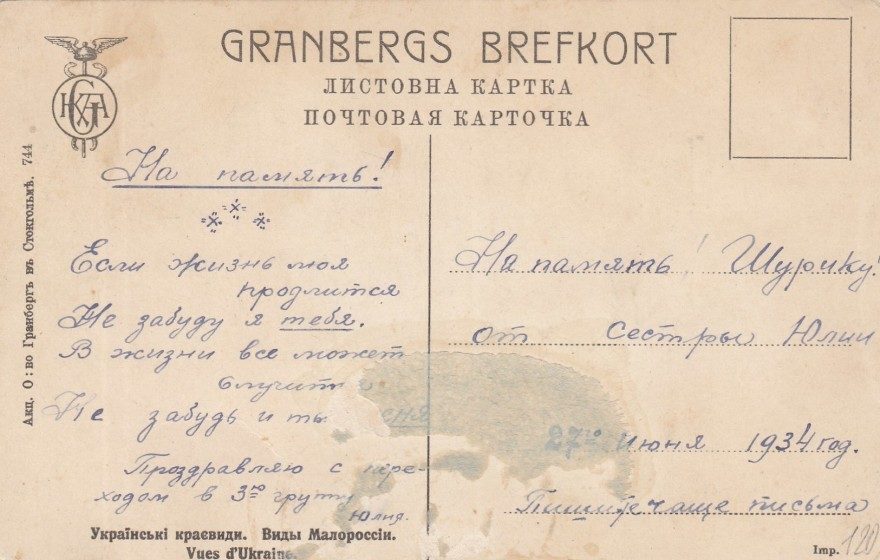 GRANBERGS BREFKORT
ЛИСТОВНА КАРТКА
ПОЧТОВАЯ КАРТОЧКА
Акц. О:во Гранбергъ въ Стокгольмѣ. 744
На память!
Если жизнь моя
продлится
Не забуду я тебя.
В жизни все может
случит
Не забудь и ты
Проздравляю с пере-
ходом в 3ю группу
Юлия.
На память! Шурику!
от сестры Юлии
27го Июня 1934 год.
Пишите чаще письма
Українські краєвиди. Виды Малороссіи.
Vues d'Ukraine.
Imp. 120